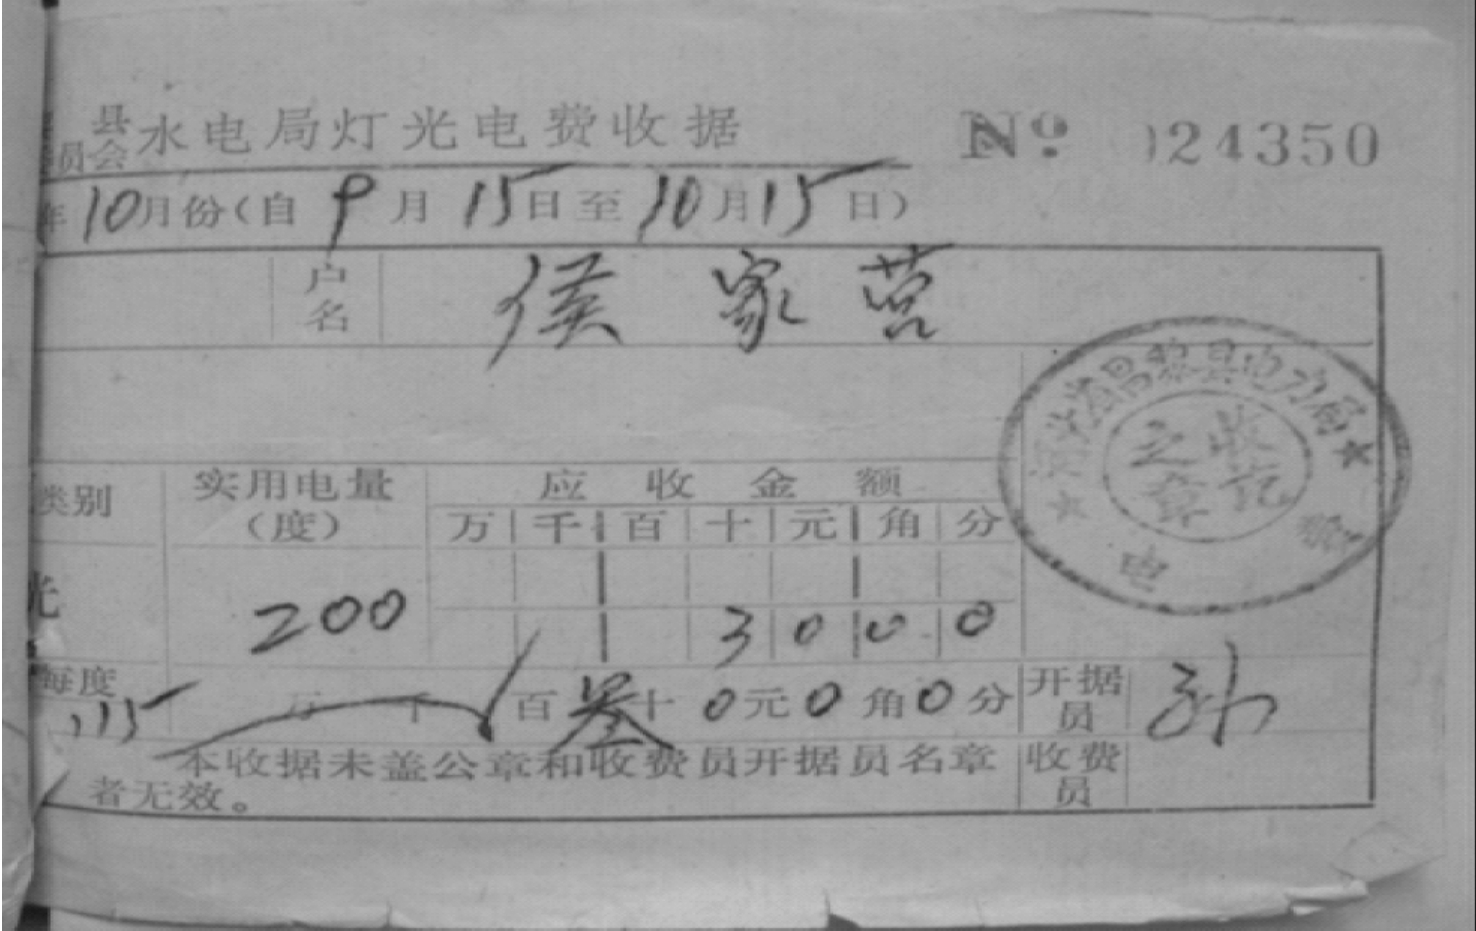 县
员会
水电局灯光电费收据 Nº 024350
年10月份(自9月15日至10月15日)
户名 侯家营
河北省昌黎县电力局
收讫之章
电
类别 实用电量(度) 应收金额
万千百十元角分
光 200 3000
每度 .115 万千百叁十0元0角0分 开据员 孙
本收据未盖公章和收费员开据员名章 收费员
者无效。